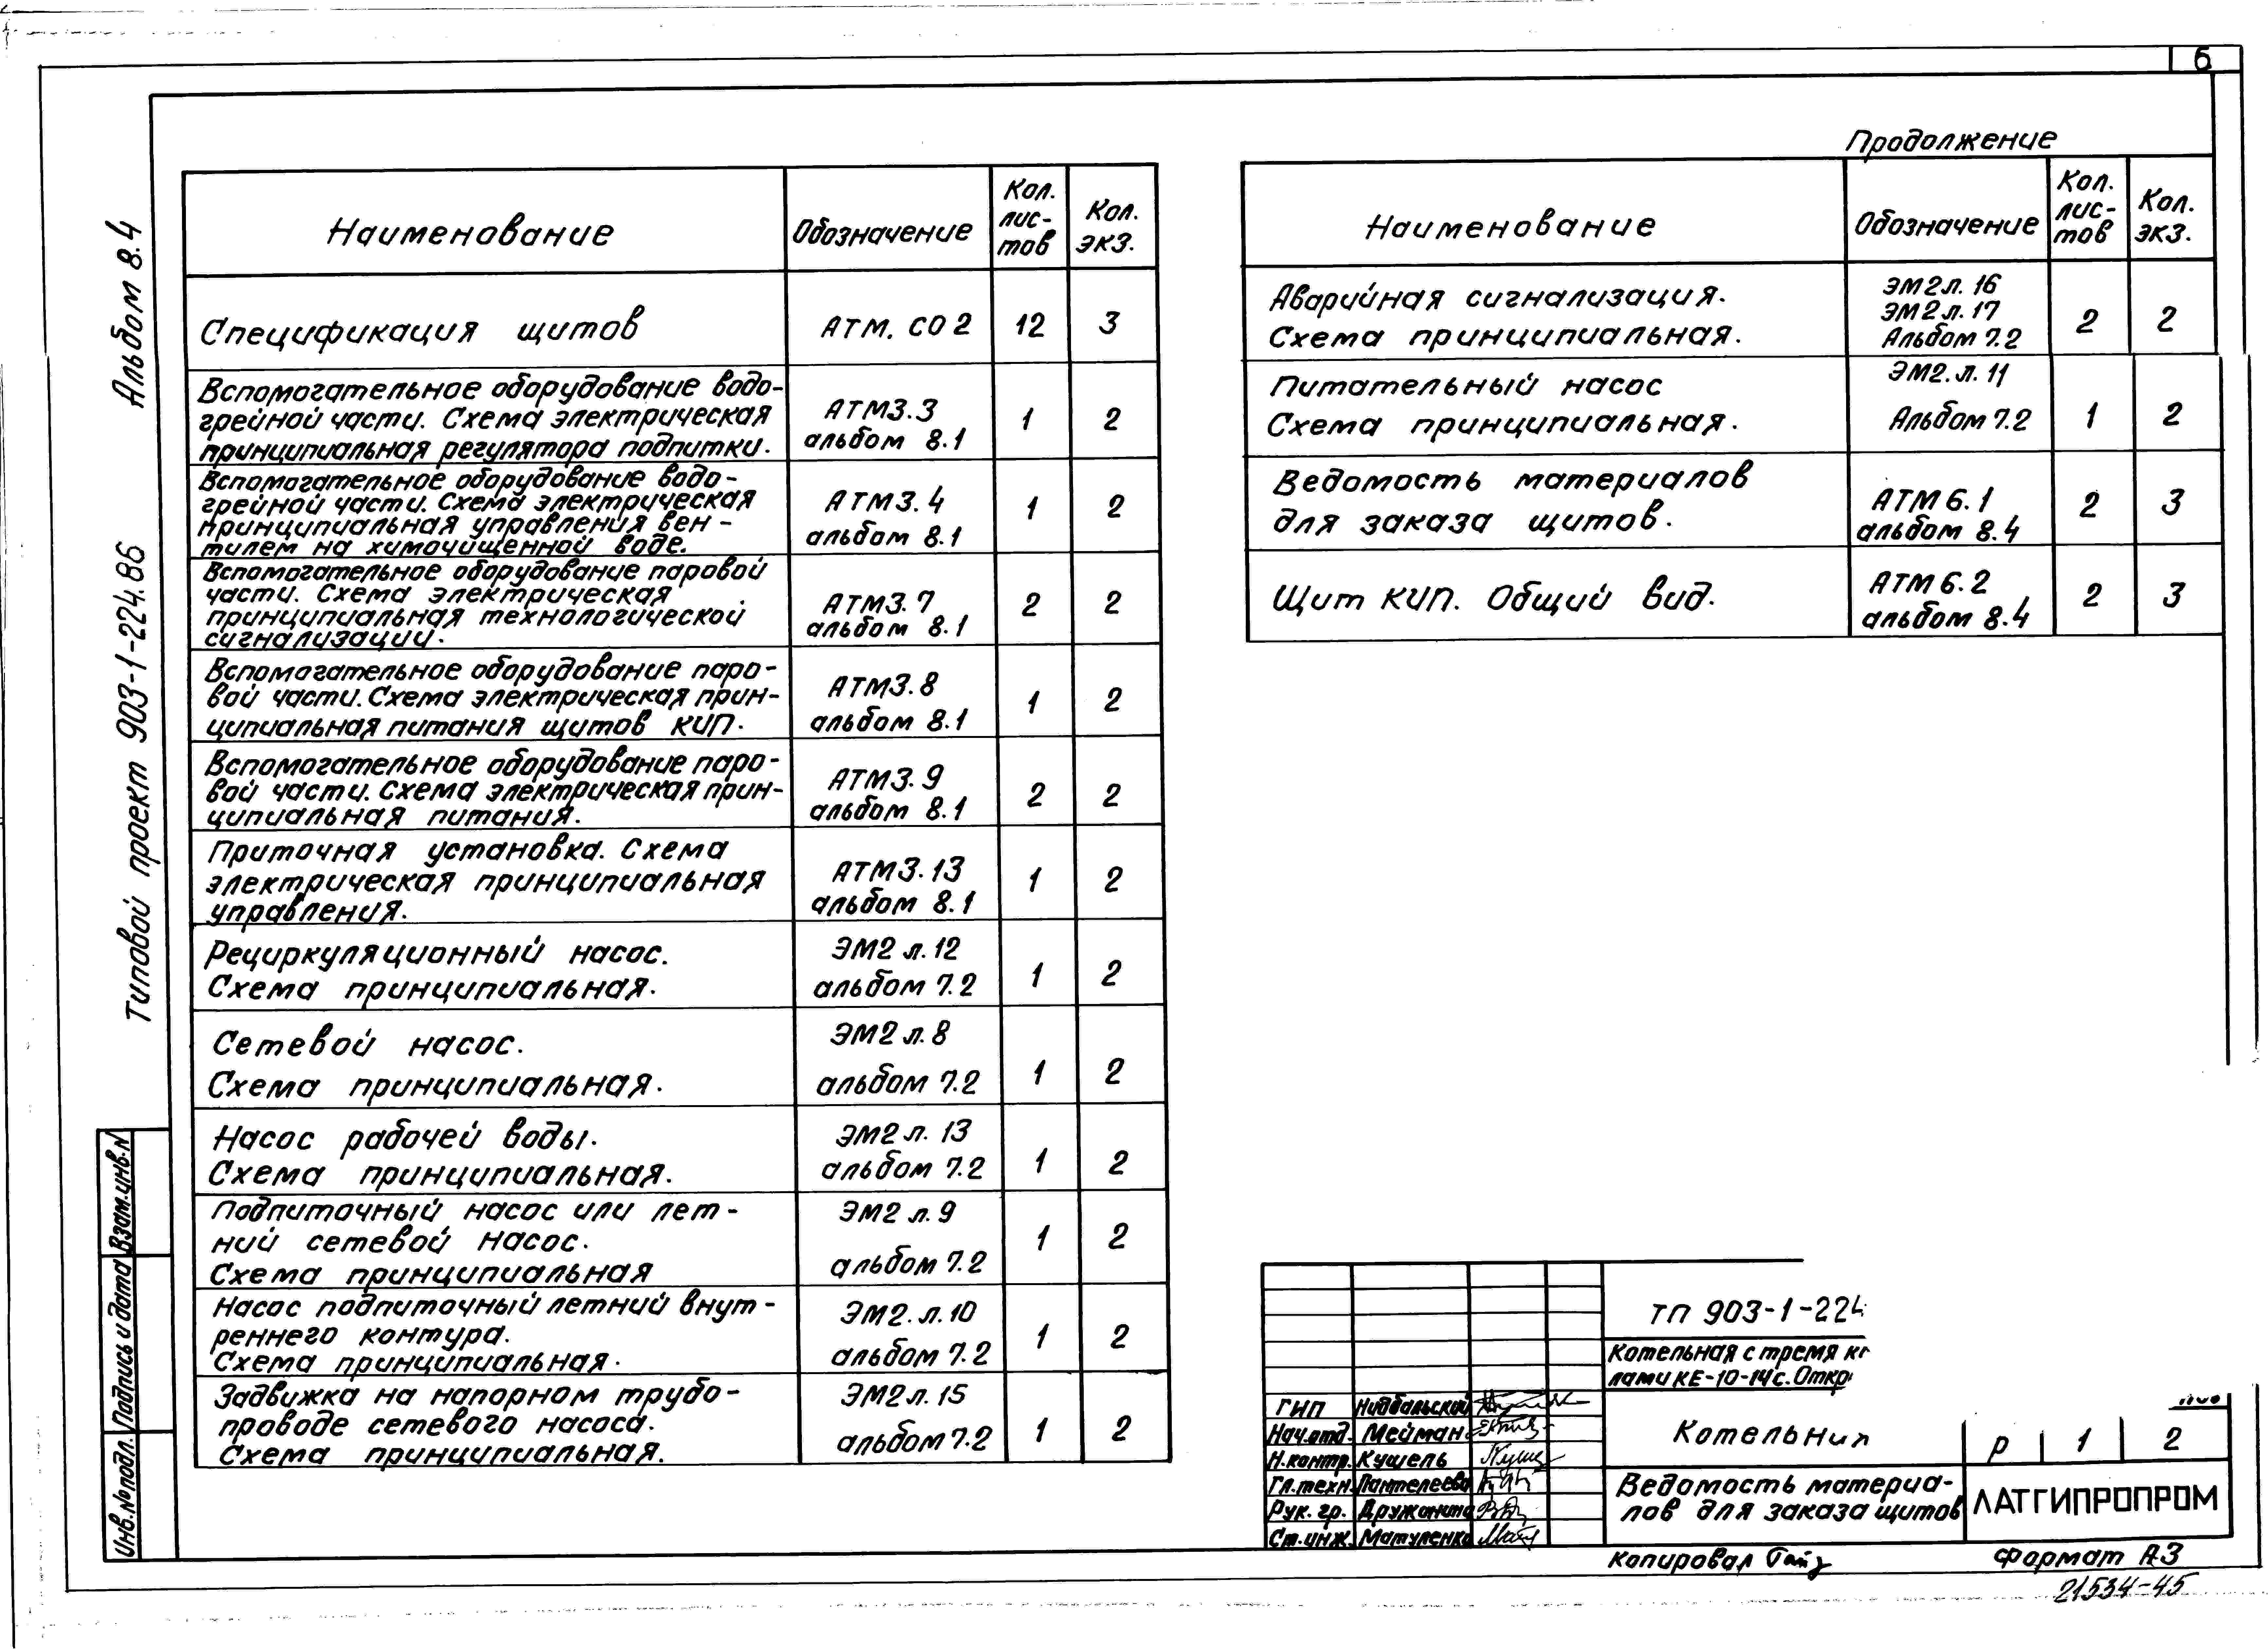 6
Альбом 8.4
Типовой проект 903-1-224.86
Наименование
Обозначение
Кол.
лис-
тов
Кол.
экз.
Спецификация щитов
АТМ. СО 2
12
3
Вспомогательное оборудование водо-
грейной части. Схема электрическая
принципиальная регулятора подпитки.
АТМ3.3
альбом 8.1
1
2
Вспомогательное оборудование водо-
грейной части. Схема электрическая
принципиальная управления вен-
тилем на химочищенной воде.
АТМ3.4
альбом 8.1
1
2
Вспомогательное оборудование паровой
части. Схема электрическая
принципиальная технологической
сигнализации.
АТМ3.7
альбом 8.1
2
2
Вспомогательное оборудование паро-
вой части. Схема электрическая прин-
ципиальная питания щитов КИП.
АТМ3.8
альбом 8.1
1
2
Вспомогательное оборудование паро-
вой части. Схема электрическая прин-
ципиальная питания.
АТМ3.9
альбом 8.1
2
2
Приточная установка. Схема
электрическая принципиальная
управления.
АТМ3.13
альбом 8.1
1
2
Рециркуляционный насос.
Схема принципиальная.
ЭМ2 л.12
альбом 7.2
1
2
Сетевой насос.
Схема принципиальная.
ЭМ2 л.8
альбом 7.2
1
2
Насос рабочей воды.
Схема принципиальная.
ЭМ2 л. 13
альбом 7.2
1
2
Подпиточный насос или лет-
ний сетевой насос.
Схема принципиальная
ЭМ2 л.9
альбом 7.2
1
2
Насос подпиточный летний внут-
реннего контура.
Схема принципиальная.
ЭМ2. л.10
альбом 7.2
1
2
Задвижка на напорном трубо-
проводе сетевого насоса.
Схема принципиальная.
ЭМ2 л.15
альбом 7.2
1
2
Продолжение
Наименование
Обозначение
Кол.
лис-
тов
Кол.
экз.
Аварийная сигнализация.
Схема принципиальная.
ЭМ2 л. 16
ЭМ2 л. 17
Альбом 7.2
2
2
Питательный насос
Схема принципиальная.
ЭМ2. л. 11
Альбом 7.2
1
2
Ведомость материалов
для заказа щитов.
АТМ 6.1
альбом 8.4
2
3
Щит КИП. Общий вид.
АТМ 6.2
альбом 8.4
2
3
Взам.инв.N
Подпись и дата
Инв.№ подл.
ТП 903-1-224
Котельная с тремя
лами КЕ-10-14с. Откр
ГИП
Нач.отд. Мейман
Н.контр. Кушель
Гл.техн. Пантелеева
Рук. гр.
Ст.инж. Матуленко
Р
1
2
Ведомость материа-
лов для заказа щитов
ЛАТГИПРОПРОМ
Копировал
Формат А3
21534-45